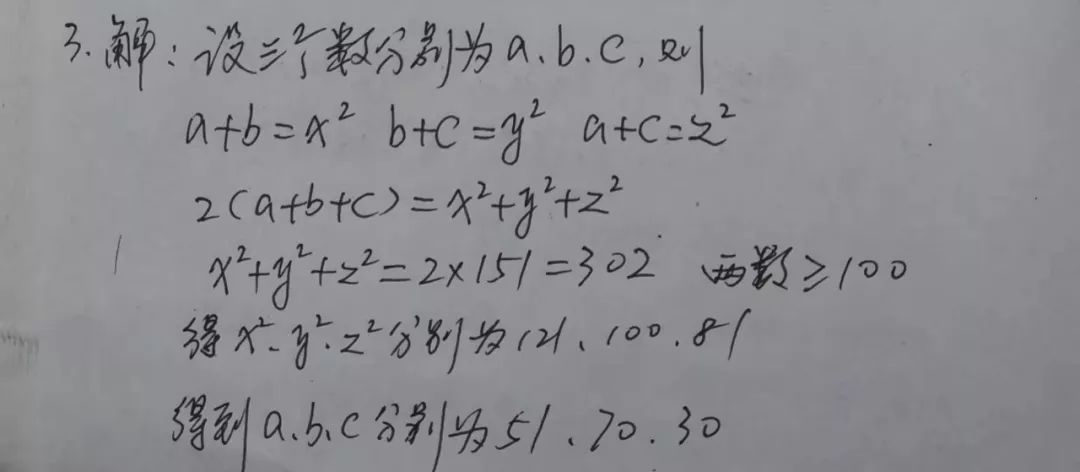 3. 解：设三个数分别为a、b、c，则
a+b=x² b+c=y² a+c=z²
2(a+b+c)=x²+y²+z²
x²+y²+z²=2×151=302 两数≥100
得x²、y²、z²分别为121、100、81
得到a、b、c分别为51、70、30